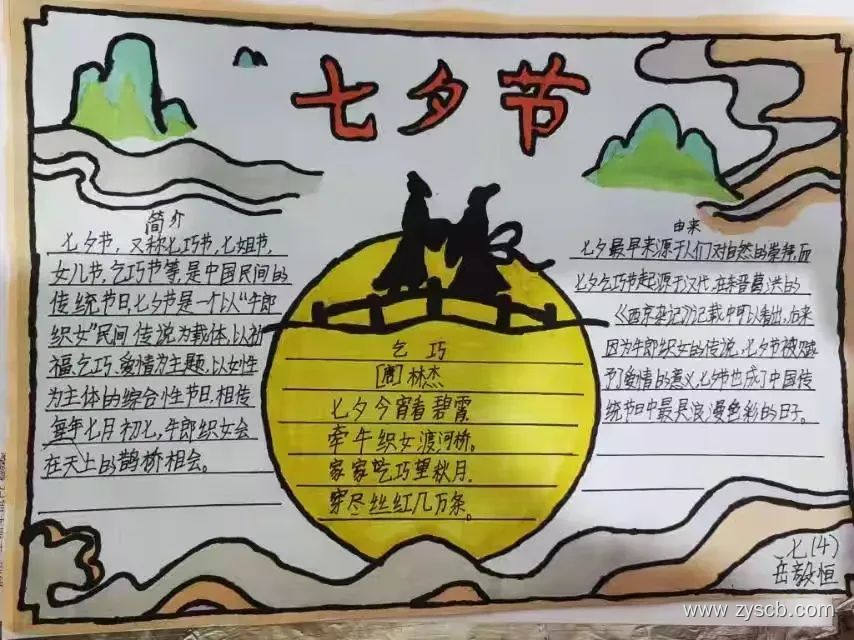 七夕节
简介
七夕节，又称七巧节，七姐节，
女儿节，乞巧节等，是中国民间的
传统节日，七夕节是一个以“牛郎
织女”民间传说为载体，以祈
福、乞巧、爱情为主题，以女性
为主体的综合性节日，相传
每年七月初七，牛郎织女会
在天上的鹊桥相会。
乞巧
[唐] 林杰
七夕今宵看碧霄，
牵牛织女渡河桥。
家家乞巧望秋月，
穿尽丝红几万条。
由来
七夕最早来源于人们对自然的崇拜，而
七夕乞巧节起源于汉代，在东晋葛洪的
《西京杂记》记载中可以看出，后来
因为牛郎织女的传说，七夕节被赋
予了爱情的意义，七夕节也成了中国传
统节日中最具浪漫色彩的日子。
七(4)
岳毅恒
www.zyscb.com